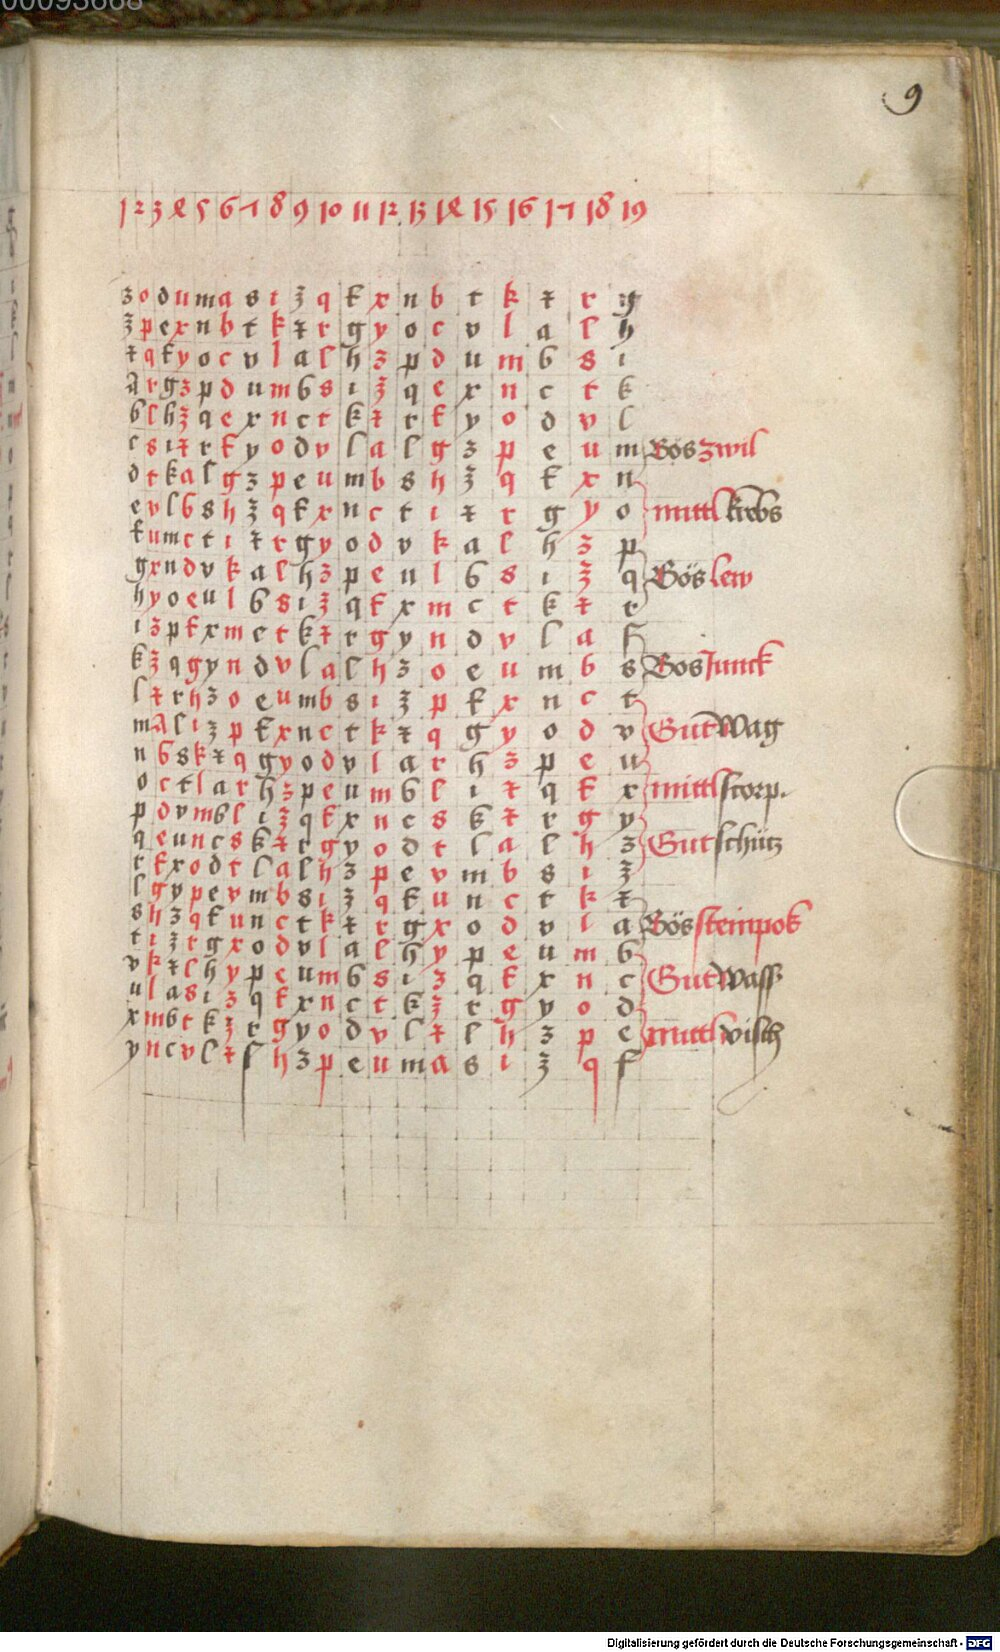 1 2 3 4 5 6 7 8 9 10 11 12 13 14 15 16 17 18 19
9
z o d u m a s i ʒ q f x n b t k ꝛ r g
ʒ p e x n b t k ꝛ r g y o c v l a ſ h
ꝛ q f y o c v l a ſ h z p d u m b s i
A r g z p d u m b s i ʒ q e x n c t k
b ſ h ʒ q e x n c t k ꝛ r f y o d v l
c s i ꝛ r f y o d v l a ſ g z p e u m Bös zwil
d t k a ſ g z p e u m b s h ʒ q f x n
e v l b s h ʒ q f x n c t i ꝛ r g y o mittl krebs
f u m c t i ꝛ r g y o d v k a ſ h z p
g x n d v k a ſ h z p e u l b s i ʒ q Bös lew
h y o e u l b s i ʒ q f x m c t k ꝛ r
i z p f x m c t k ꝛ r g y n d v l a ſ
k ʒ q g y n d v l a ſ h z o e u m b s Bos Junck
l ꝛ r h z o e u m b s i ʒ p f x n c t
m A ſ i ʒ p f x n c t k ꝛ q g y o d v Gut Wag
n b s k ꝛ q g y o d v l a r h z p e u
o c t l a r h z p e u m b ſ i ꝛ q f x mittl scorp.
p d v m b ſ i ʒ q f x n c s k ꝛ r g y
q e u n c s k ꝛ r g y o d t l a ſ h z Gut schütz
r f x o d t l a ſ h z p e v m b s i ʒ
ſ g y p e v m b s i ʒ q f u n c t k ꝛ
s h z q f u n c t k ꝛ r g x o d v l a Bös steinpok
t i ʒ r g x o d v l a ſ h y p e u m b
v k ꝛ ſ h y p e u m b s i z q f x n c Gut Wass
u l a s i z q f x n c t k ʒ r g y o d
x m b t k ʒ r g y o d v l ꝛ ſ h z p e mittl visch
y n c v l ꝛ ſ h z p e u m a s i ʒ q f
Digitalisierung gefördert durch die Deutsche Forschungsgemeinschaft - DFG